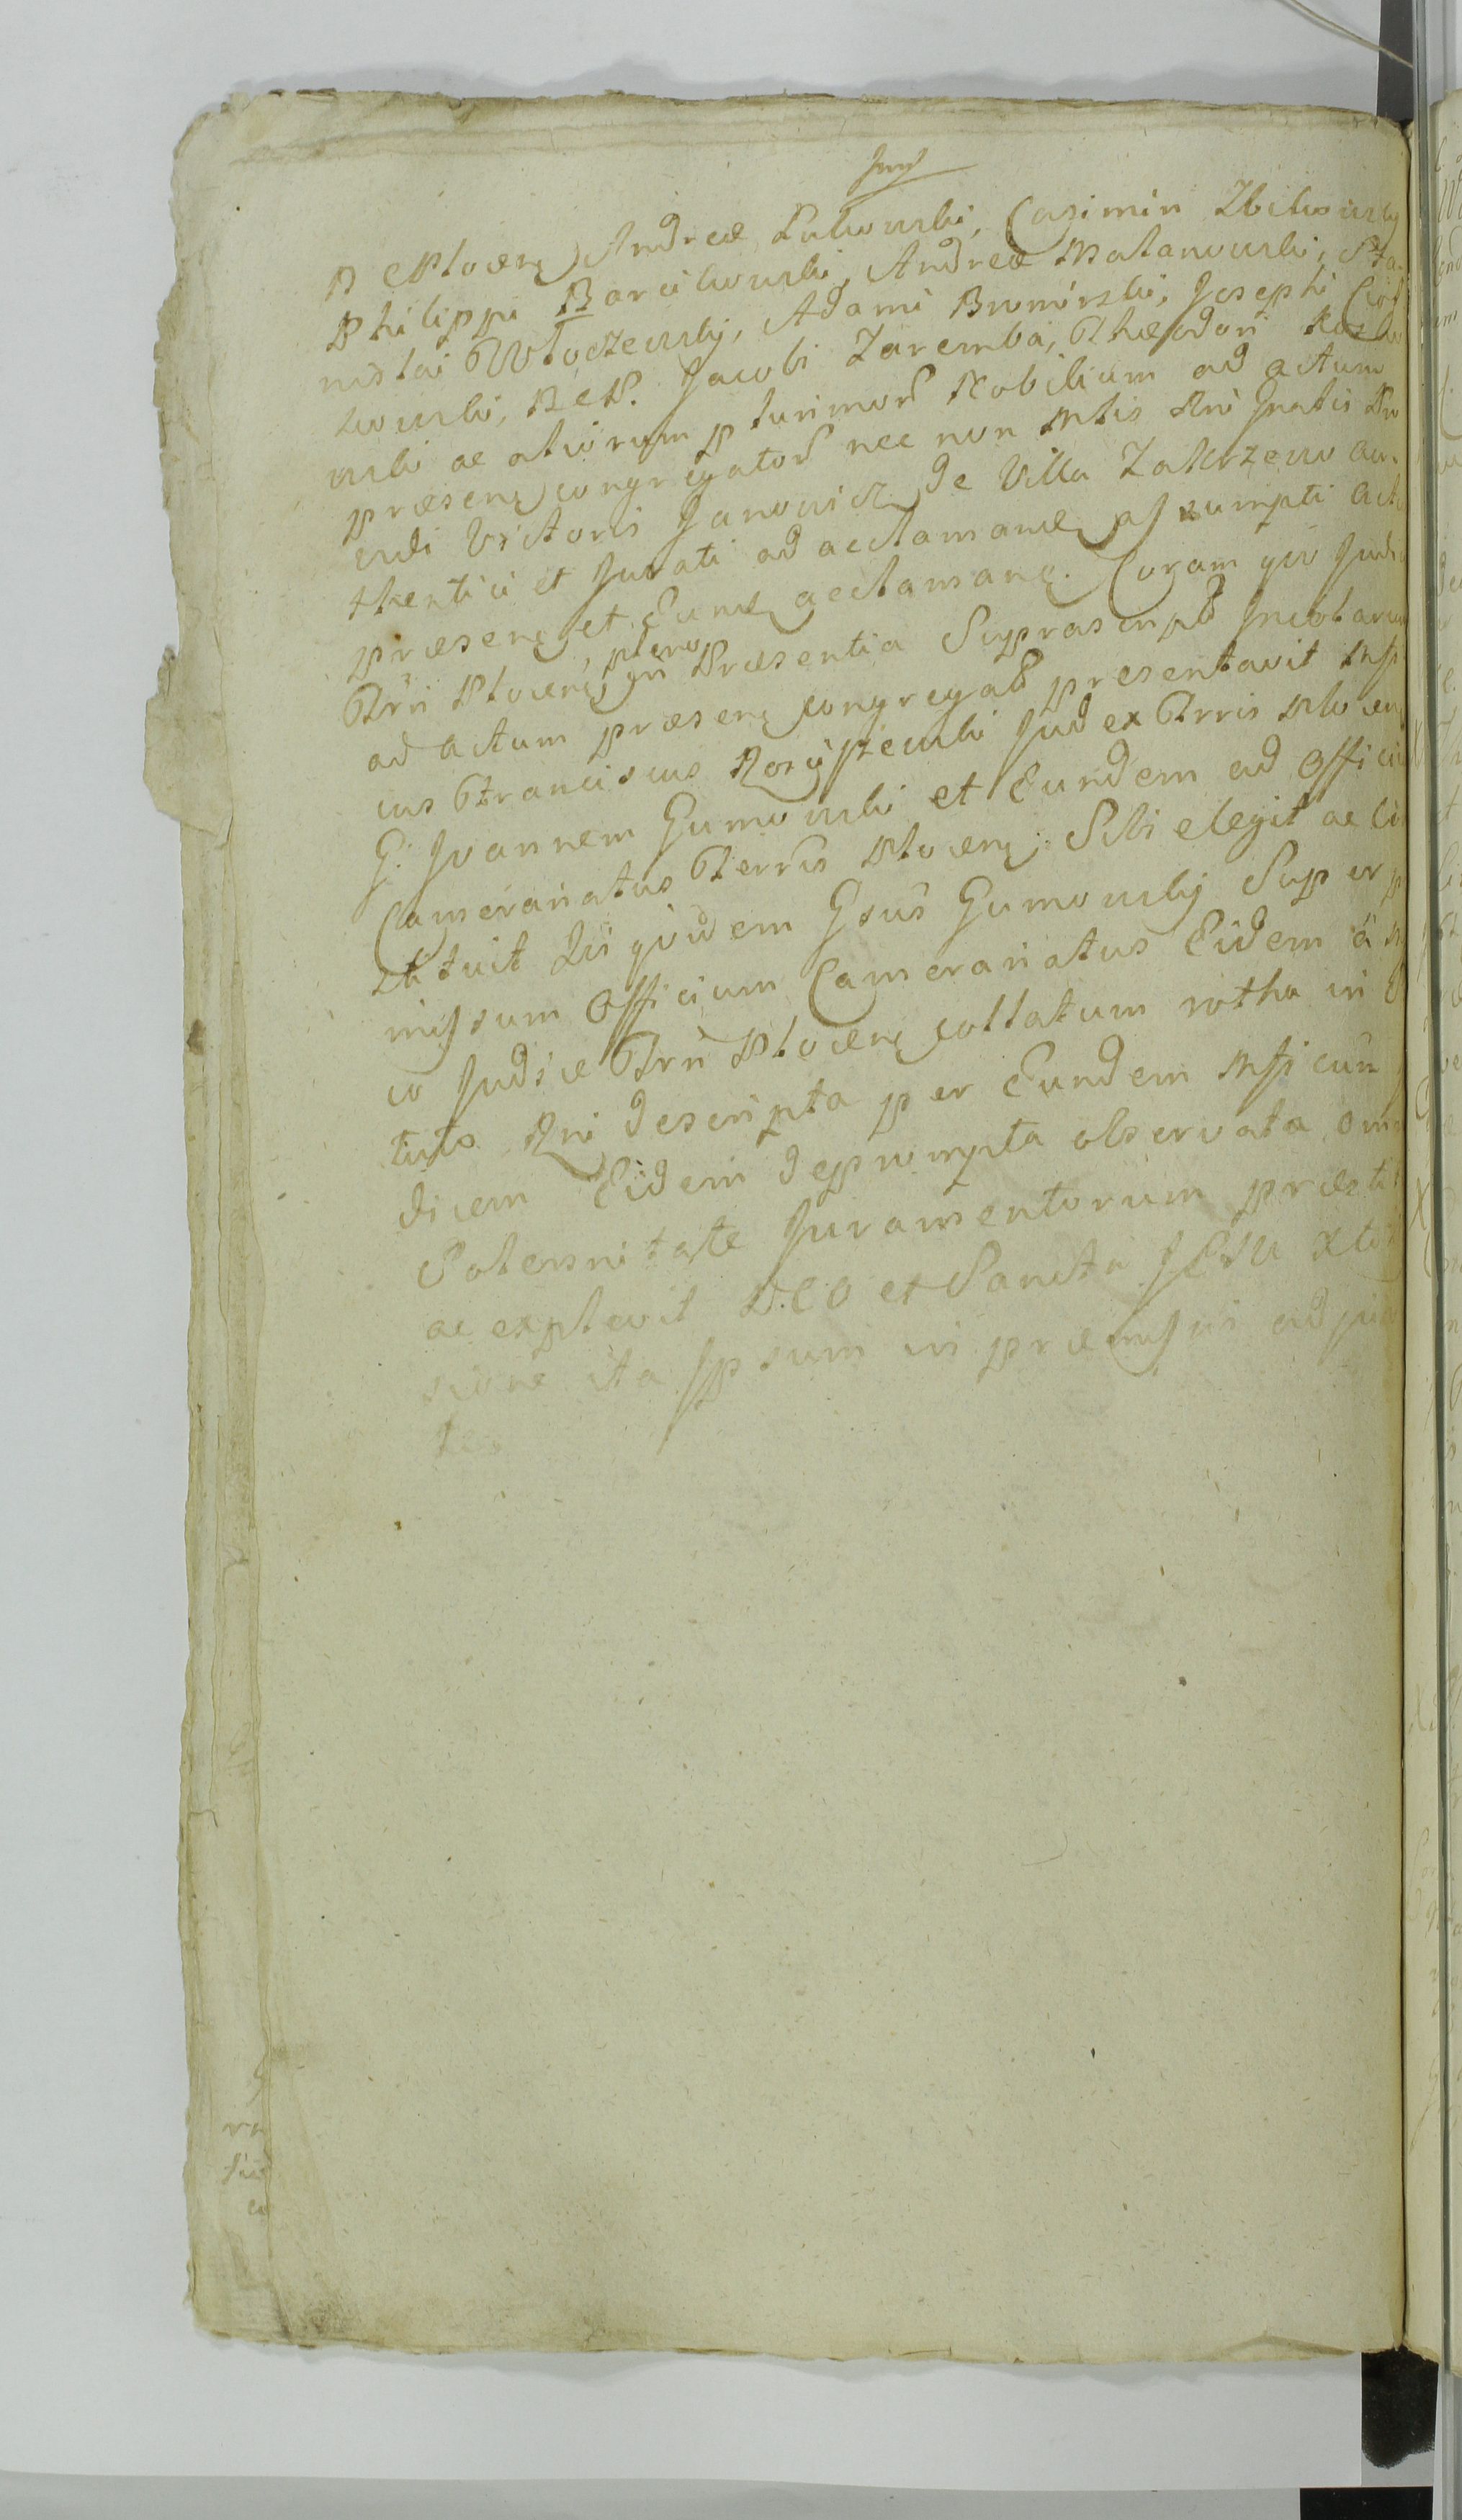 Andreæ Lukowski, Casimiri Zbikowsky
Philippi Barcikowski, Andreæ Malanowski, Sta-
nislai Włoczewsky, Adami Bromirski, Josephi
kowski, Jacobi Zaremba, Theodori
wski ac aliorum plurimorū Nobilium ad actum
præsenę congregatorū nec non Mtis Rni Jnatis
Victoris Janowicz de Villa Zakrzewo au-
thentici et Jurati ad acclamandę assumpti actū
præsenę et Eundę acclamanę. Coram quo Judi
Trri Plocenę, pleno, in Præsentia Suprascriptorū Incolarum
ad actum præsenę congregatorū presentavit Mfi
cus Franciscus Rosciszewski Judex Trris Plocenę
G. Joannem Gumowski et Eundem ad Officiu
Cameranatus Terris Plocenę Sibi elegit ac
stituit Qui quidem Gsus Gumowsky Super p
missum Officium Cameranatus Eidem à M
co Judice Trri Plocenę collatum rotha in
tuto Rni descripta per Eundem Mfi cum
dicem Eidem deprompta observata omni
Solennitate Juramentorum præsti
ac explevit DEO et Sancta JESU
sione ita Ipsum in præmissis adjuv
te